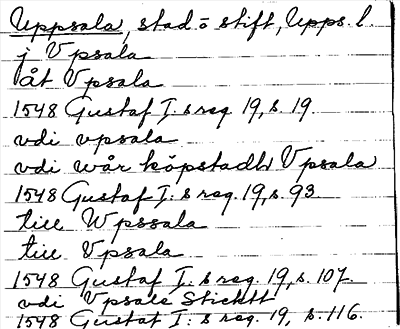 Uppsala, stad o stift, Upps. l.
j Vpsala
åt Vpsala
1548 Gustaf I:s reg 19, s. 19.
vdi vpsala
vdi wår köpstadh Vpsala
1548 Gustaf I:s reg. 19, s. 93
till Wpssala
till Vpsala
1548 Gustaf I:s reg. 19, s. 107.
vdi Vpsale Sticktt
1548 Gustaf I:s reg. 19, s. 116.